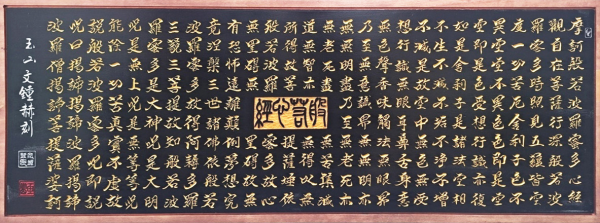 摩訶般若波羅蜜多心經
觀自在菩薩行深般若波
羅蜜多時照見五蘊皆空
度一切苦厄舍利子色不
異空空不異色色即是空
空即是色受想行識亦復
如是舍利子是諸法空相
不生不滅不垢不淨不增
不減是故空中無色無受
想行識無眼耳鼻舌身意
無色聲香味觸法無眼界
乃至無意識界無無明亦
無無明盡乃至無老死亦
無老死盡無苦集滅
道無智亦無得以無
所得故菩提薩埵依
般若波羅蜜多故心
無罣礙無罣礙故無
有恐怖遠離顛倒夢想究
竟涅槃三世諸佛依般若
波羅蜜多故得阿耨多羅
三藐三菩提故知般若波
羅蜜多是大神呪是大明
呪是無上呪是無等等呪
能除一切苦真實不虛故
說般若波羅蜜多呪即說
呪曰揭諦揭諦波羅揭諦
波羅僧揭諦菩提薩婆訶
玉山文鐘赫刻
般若心經